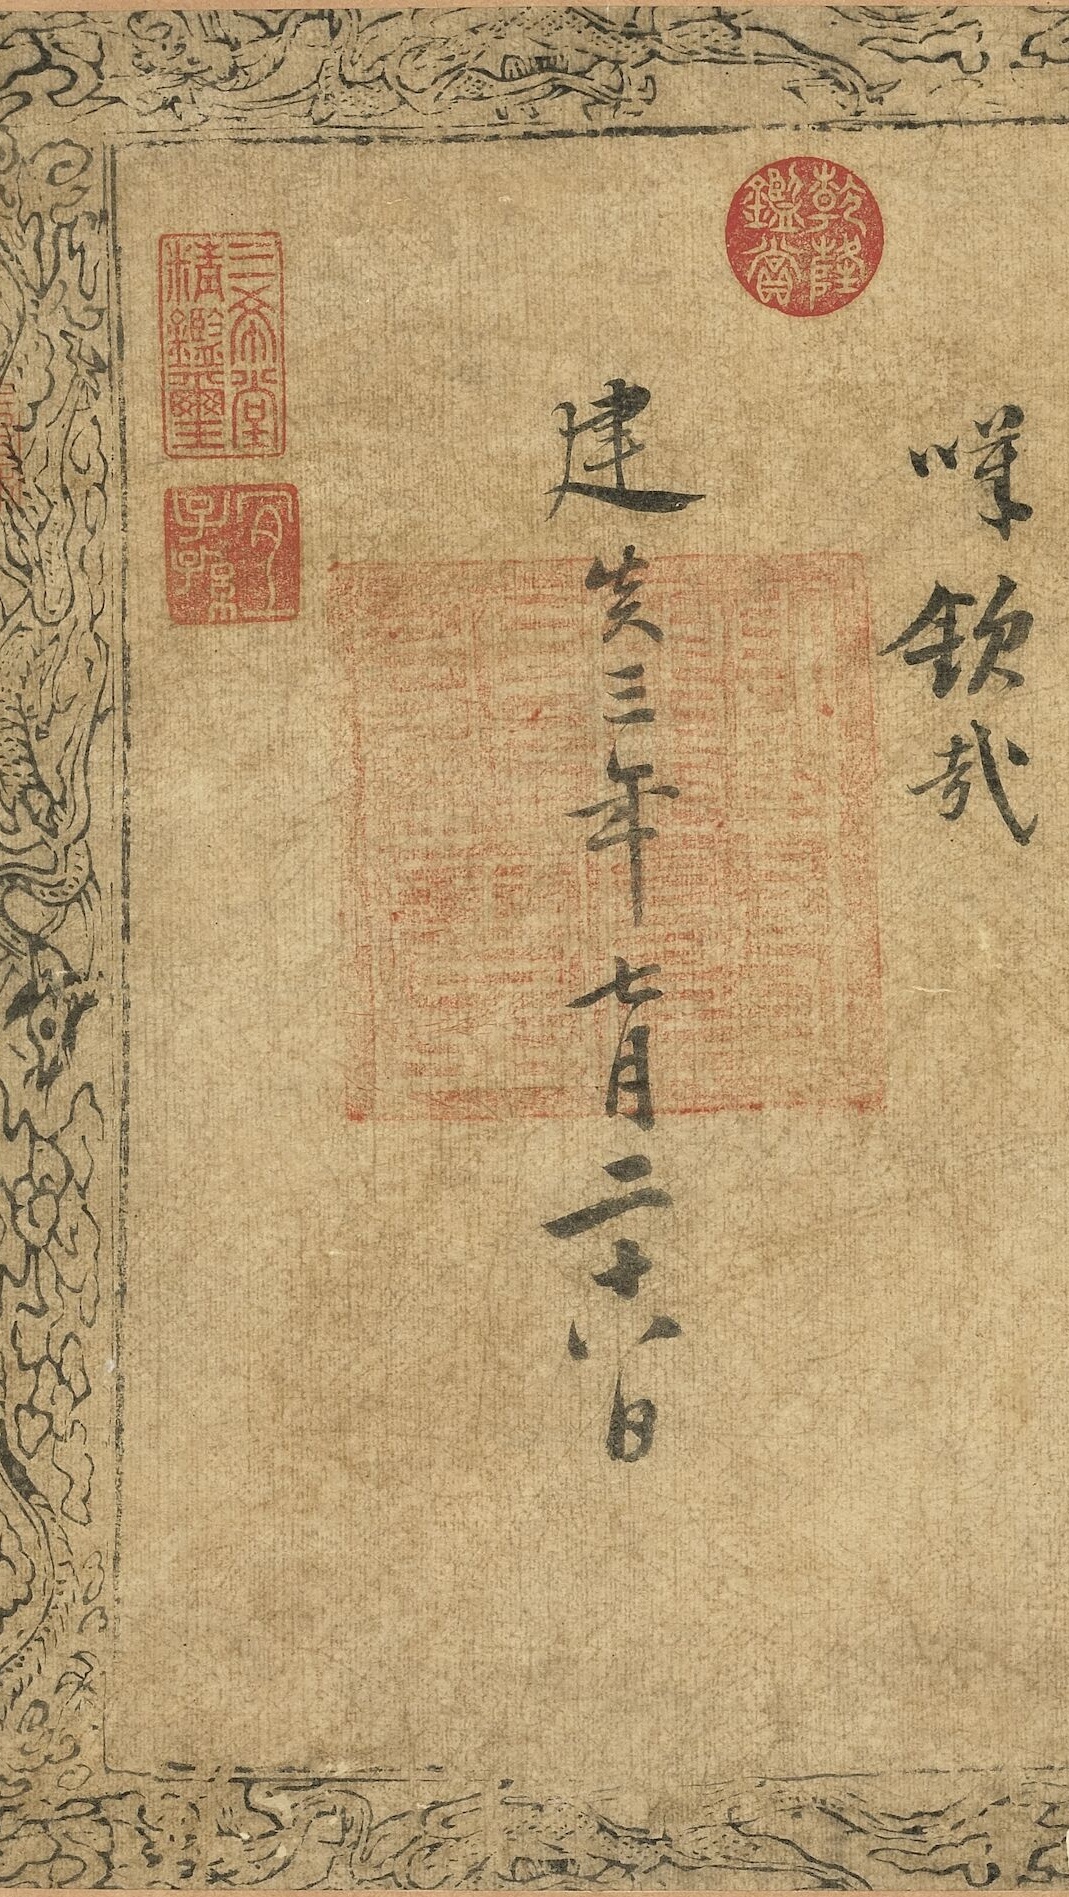 欽哉
乾隆鑑賞
建炎三年七月二十八日
三希堂精鑑璽
宜子孫